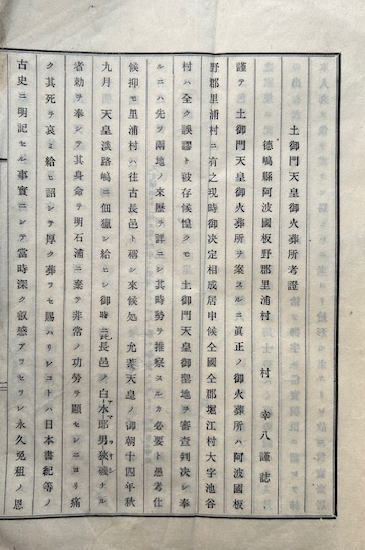 土御門天皇御火葬所考證
德嶋縣阿波國板野郡里浦村
村 幸八謹誌
謹テ色土御門天皇御火葬所ヲ案スルニ眞正ノ御火葬所ハ阿波國板
野郡里浦村ニ有之現時御決定相成居申候仝國仝郡堀江村大字池谷
村ハ全ク誤謬ト被存候惶クモ 土御門天皇御聖地ヲ審査判決シ奉
ルニハ先ヲ兩地ノ來歷ヲ詳ニシ其時勢ヲ推察スルカ必要ト愚考仕
候抑モ里浦村ハ往古長邑ト稱シ來候処 允恭天皇ノ御朝十四年秋
九月 天皇淡路嶋ニ佃獵シ給ヒシ御時ニ長邑ノ白水郎男狹磯ナル
者勅ヲ奉シテ其身命ヲ明石浦ニ棄テ非常ノ功勞ヲ顯セシニヨリ痛
ク其死ヲ哀ミ給ヒ詔シテ厚ク葬ラセ賜ハリシコトハ日本書紀等ノ
古史ニ明記セル事實ニシテ當時深ク叡感アラセラレ永久免租ノ恩